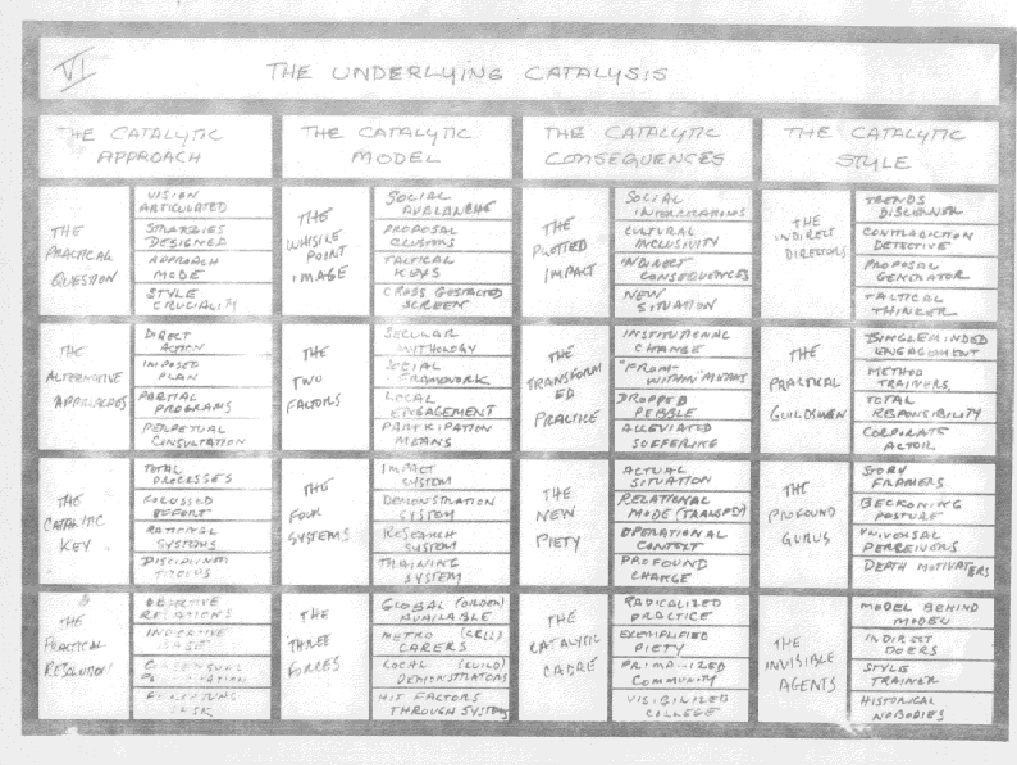 VI
THE UNDERLYING CATALYSIS
THE CATALYTIC
APPROACH
THE CATALYTIC
MODEL
THE CATALYTIC
CONSEQUENCES
THE CATALYTIC
STYLE
THE
PRACTICAL
QUESTION
VISION
ARTICULATED
STRATEGIES
DESIGNED
APPROACH
MODE
STYLE
CRUCIALITY
THE
WHISTLE
POINT
IMAGE
SOCIAL
AVALANCHE
PROPOSAL
CLUSTERS
TACTICAL
KEYS
CROSS GESTALTED
SCREEN
THE
PLOTTED
IMPACT
SOCIAL
CULTURAL
INCLUSIVITY
INDIRECT
CONSEQUENCES
NEW
SITUATION
THE
INDIRECT
DIRECTORS
TRENDS
DISCERNER
CONTRADICTION
DETECTIVE
PROPOSAL
GENERATOR
TACTICAL
THINKER
THE
ALTERNATIVE
APPROACHES
DIRECT
ACTION
IMPOSED
PLAN
PARTIAL
PROGRAMS
PERPETUAL
CONSULTATION
THE
TWO
FACTORS
SECULAR
MYTHOLOGY
SOCIAL
FRAMEWORK
LOCAL
ENGAGEMENT
PARTICIPATION
MEANS
THE
TRANSFORM
ED
PRACTICE
INSTITUTIONAL
CHANGE
"FROM-
WITHIN" MEANS
DROPPED
PEBBLE
ALLEVIATED
SUFFERING
THE
PRACTICAL
GUILDSMEN
SINGLEMINDED
ENGAGEMENT
METHOD
TRAINERS
TOTAL
RESPONSIBILITY
CORPORATE
ACTOR
THE
CATALYTIC
KEY
TOTAL
PROCESSES
FOCUSSED
EFFORT
RATIONAL
SYSTEMS
DISCIPLINED
TROOPS
THE
FOUR
SYSTEMS
IMPACT
SYSTEM
DEMONSTRATION
SYSTEM
RESEARCH
SYSTEM
TRAINING
SYSTEM
THE
NEW
PIETY
ACTUAL
SITUATION
RELATIONAL
MODE
OPERATIONAL
CONTEXT
PROFOUND
CHANGE
THE
PROFOUND
GURUS
STORY
FRAMERS
BECKONING
POSTURE
UNIVERSAL
PERCEIVERS
DEPTH MOTIVATERS
THE
PRACTICAL
RESOLUTION
OBJECTIVE
RELATIONS
INDICATIVE
BASE
CONSENSUAL
THE
THREE
FORCES
GLOBAL (ORDER)
AVAILABLE
METRO (CELL)
CARERS
LOCAL (GUILD)
DEMONSTRATORS
HIT FACTORS
THROUGH SYSTEMS
THE
CATALYTIC
CADRE
RADICALIZED
PRACTICE
EXEMPLIFIED
PIETY
PRIMALIZED
COMMUNITY
VISIBILIZED
COLLEGE
THE
INVISIBLE
AGENTS
MODEL BEHIND
MODEL
INDIRECT
DOERS
STYLE
TRAINER
HISTORICAL
NOBODIES